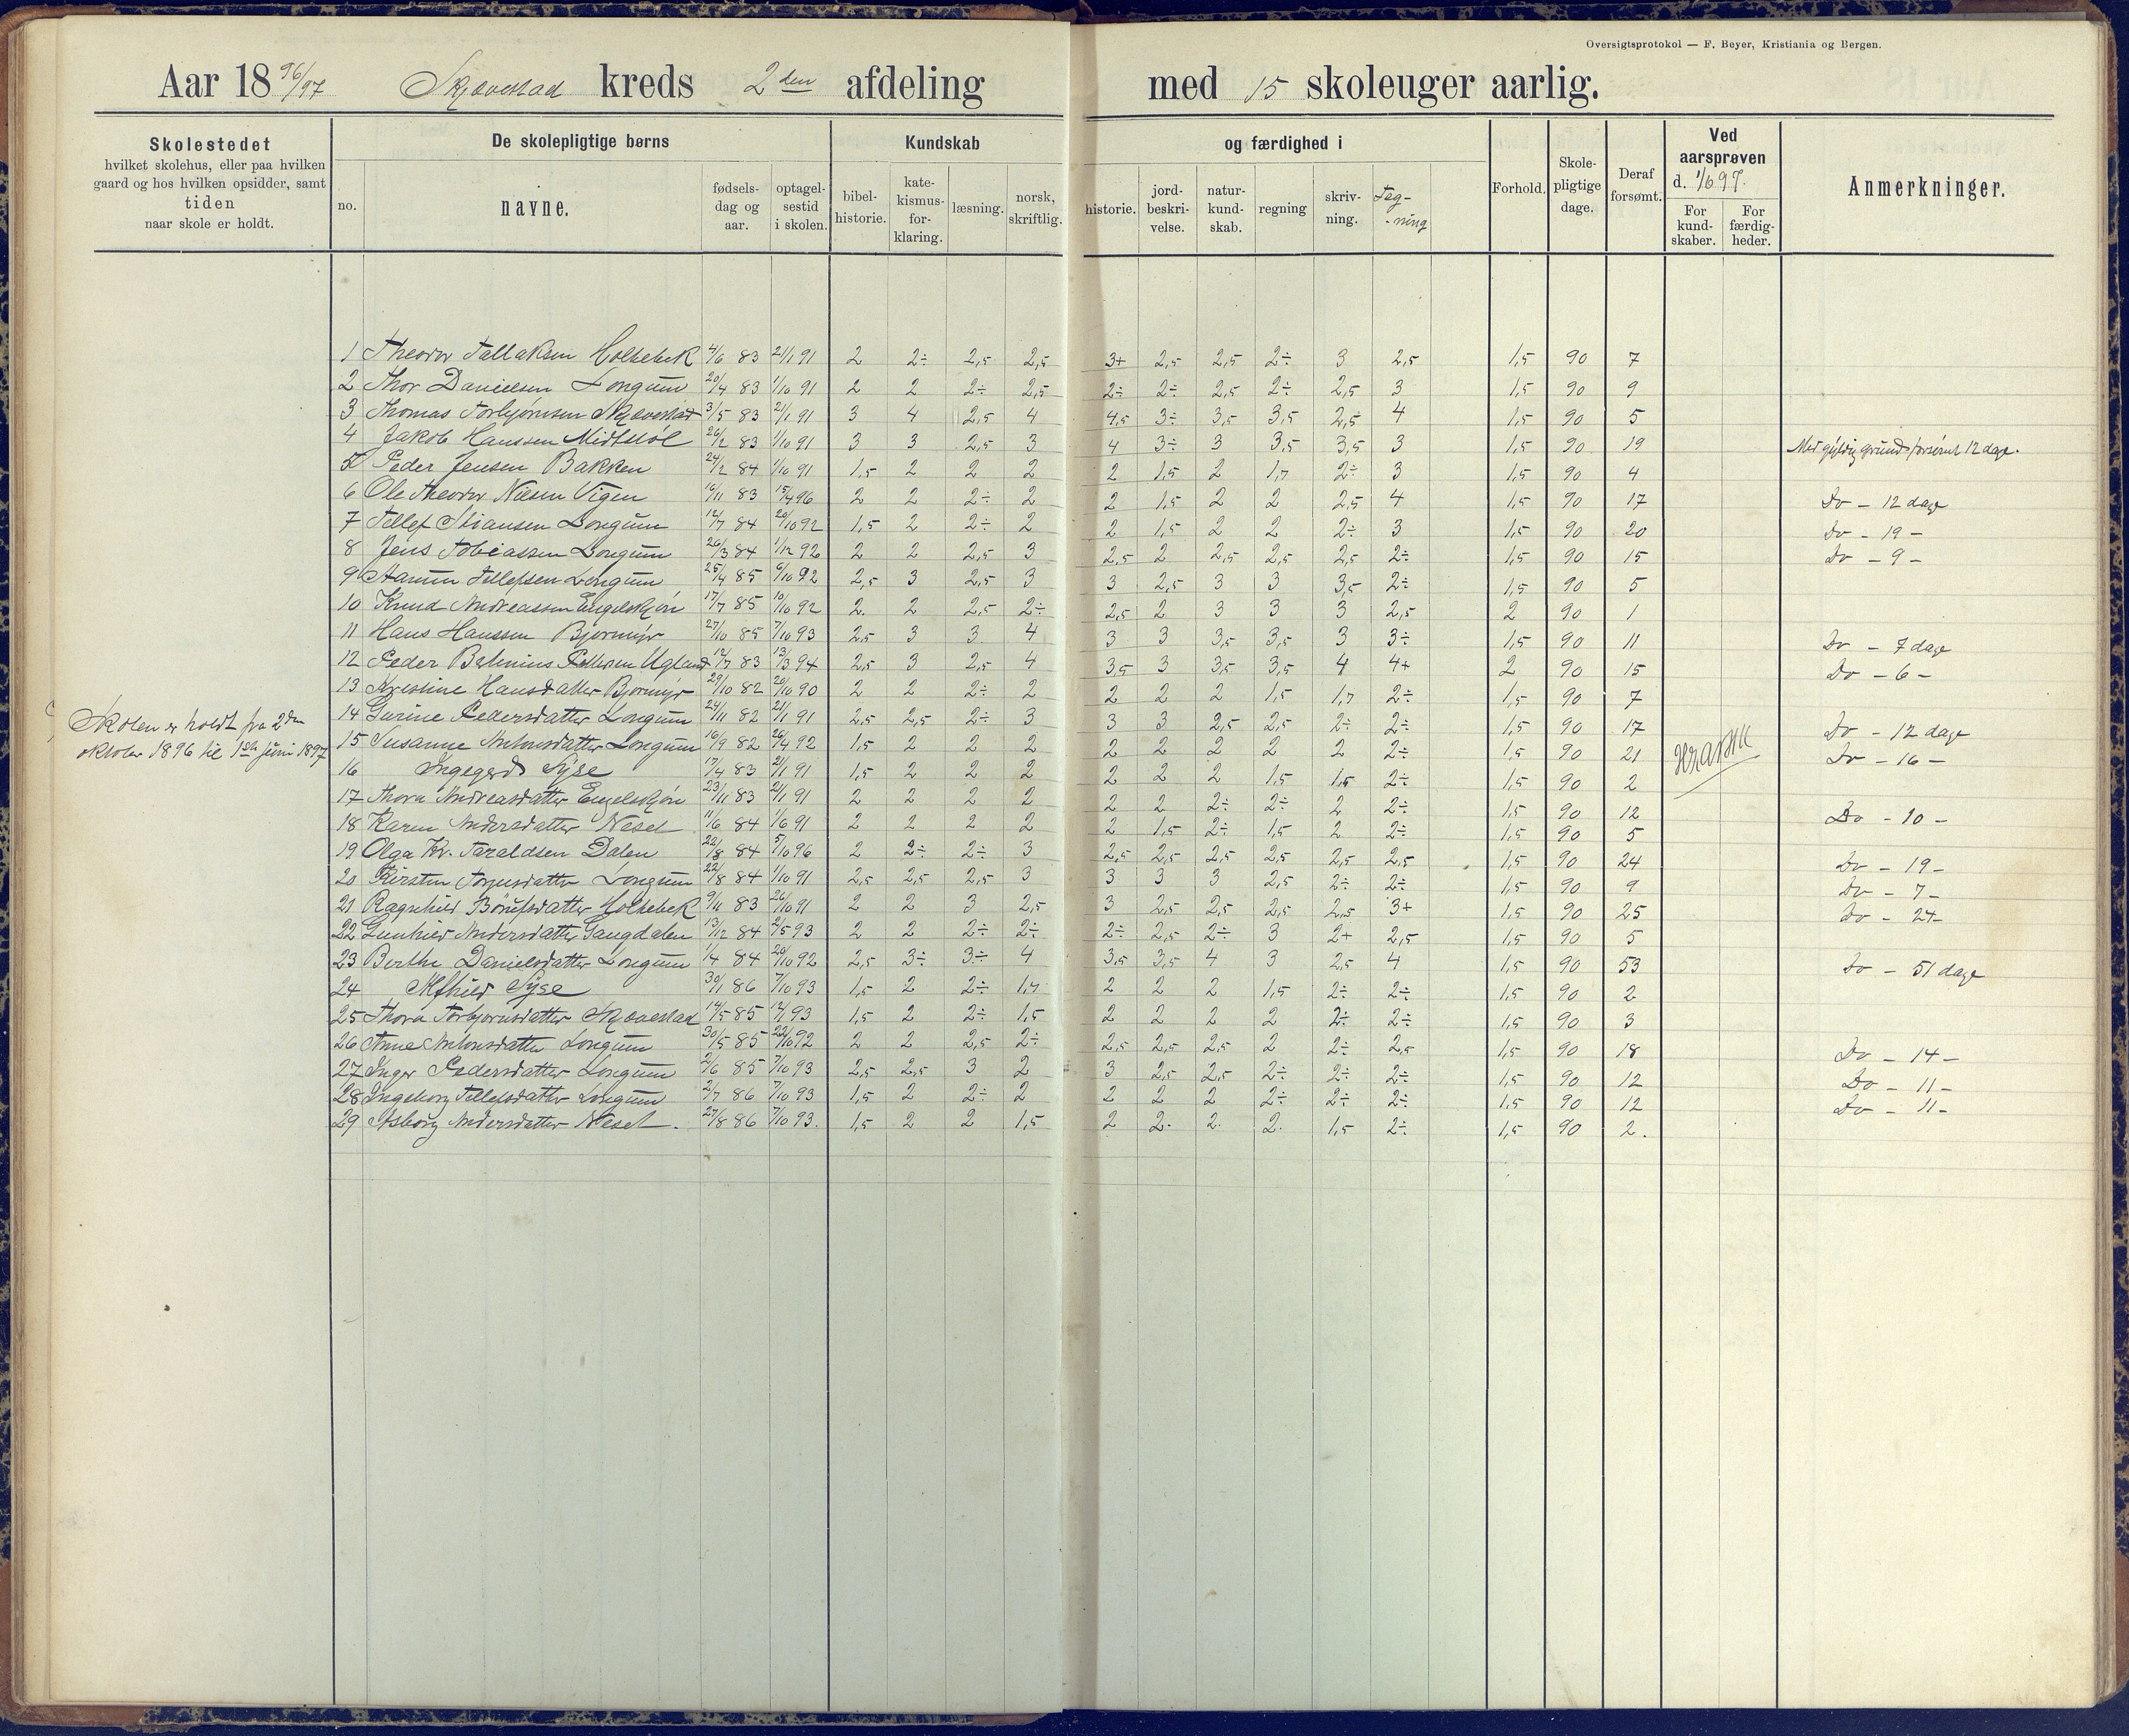 Oversigtsprotokol — F. Beyer, Kristiania og Bergen.
Aar 1896/97 Skjævestad kreds 2den afdeling med 15 skoleuger aarlig.
Skolestedet
hvilket skolehus, eller paa hvilken
gaard og hos hvilken opsidder, samt
tiden
naar skole er holdt.
De skolepligtige børns
no.
navne.
fødsels-
dag og
aar.
optagel-
sestid
i skolen.
Kundskab
bibel-
historie.
kate-
kismus-
for-
klaring.
læsning.
norsk,
skriftlig.
og færdighed i
historie.
jord-
beskri-
velse.
natur-
kund-
skab.
regning
skriv-
ning.
Teg-
-ning
Forhold.
Skole-
pligtige
dage.
Deraf
forsømt.
Ved
aarsprøven
d. 1/6 97.
For
kund-
skaber.
For
færdig-
heder.
Anmerkninger.
Skolen er holdt fra 2den
oktober 1896 til 1ste juni 1897
1 Theodor Tallaksen Holtebek 4/6 83 21/1 91 2 2÷ 2,5 2,5 3+ 2,5 2,5 2÷ 3 2,5 1,5 90 7
2 Thor Danielsen Longum 20/4 83 1/10 91 2 2 2÷ 2,5 2÷ 2÷ 2,5 2÷ 2,5 3 1,5 90 9
3 Thomas Torbjørnsen Skjævestad 3/5 83 21/1 91 3 4 2,5 4 4,5 3÷ 3,5 3,5 2,5 4 1,5 90 5
4 Jakob Hanssen Midtstøl 26/2 83 1/10 91 3 3 2,5 3 4 3÷ 3 3,5 3,5 3 1,5 90 19 Med gyldig grund forsømt 12 dage.
5 Peder Jensen Bakken 24/2 84 1/10 91 1,5 2 2 2 2 1,5 2 1,7 2÷ 3 1,5 90 4
6 Ole Theodor Nilsen Vigen 16/11 83 15/4 96 2 2 2÷ 2 2 1,5 2 2 2,5 4 1,5 90 17 Do - 12 dage
7 Tellef Stiansen Longum 12/7 84 20/10 92 1,5 2 2÷ 2 2 1,5 2 2 2÷ 3 1,5 90 20 Do - 19 -
8 Jens Tobiassen Longum 26/3 84 1/12 92 2 2 2,5 3 2,5 2 2,5 2,5 2,5 2÷ 1,5 90 15 Do - 9 -
9 Aanun Tellefsen Longum 25/4 85 6/10 92 2,5 3 2,5 3 3 2,5 3 3 3,5 2÷ 1,5 90 5
10 Knud Andreassen Engelskjøn 17/7 85 10/10 92 2 2 2,5 2÷ 2,5 2 3 3 3 2,5 2 90 1
11 Hans Hanssen Bjormyr 27/10 85 7/10 93 2,5 3 3 4 3 3 3,5 3,5 3 3÷ 1,5 90 11 Do - 7 dage
12 Peder Betinius Pettersen Ugland 12/7 83 13/3 94 2,5 3 2,5 4 3,5 3 3,5 3,5 4 4+ 2 90 15 Do - 6 -
13 Kristine Hansdatter Bjormyr 29/10 82 20/10 90 2 2 2÷ 2 2 2 2 1,5 1,7 2÷ 1,5 90 7
14 Gurine Pedersdatter Longum 24/11 82 21/1 91 2,5 2,5 2÷ 3 3 3 2,5 2,5 2÷ 2÷ 1,5 90 17 Do - 12 dage
15 Susanne Antonsdatter Longum 16/9 82 26/4 92 1,5 2 2 2 2 2 2 2 2 2÷ 1,5 90 21 Do - 16 -
16 Ingegerd Syse 17/4 83 21/1 91 1,5 2 2 2 2 2 2 1,5 1,5 2÷ 1,5 90 2
17 Thora Andreasdatter Engelskjøn 23/11 83 21/1 91 2 2 2 2 2 2 2÷ 2÷ 2 2÷ 1,5 90 12 Do - 10 -
18 Karen Andersdatter Neset 11/6 84 1/6 91 2 2 2 2 2 1,5 2÷ 1,5 2 2÷ 1,5 90 5
19 Olga Kr. Taraldsen Dalen 22/8 84 5/10 96 2 2÷ 2÷ 3 2,5 2,5 2,5 2,5 2,5 2,5 1,5 90 24 Do - 19 -
20 Kirsten Torjusdatter Longum 22/8 84 1/10 91 2,5 2,5 2,5 3 3 3 3 2,5 2÷ 2÷ 1,5 90 9 Do - 7 -
21 Ragnhild Børufsdatter Holtebek 9/11 83 26/10 91 2 2 3 2,5 3 2,5 2,5 2,5 2,5 3+ 1,5 90 25 Do - 24
22 Gunhild Andersdatter Gangdalen 13/12 84 2/5 93 2 2 2÷ 2÷ 2÷ 2,5 2÷ 3 2+ 2,5 1,5 90 5
23 Berthe Danielsdatter Longum 1/4 84 20/10 92 2,5 3÷ 3÷ 4 3,5 3,5 4 3 2,5 4 1,5 90 53 Do - 51 dage
24 Alfhild Syse 30/1 86 7/10 93 1,5 2 2÷ 1,7 2 2 2 1,5 2÷ 2÷ 1,5 90 2
25 Thora Torbjørnsdatter Skjævestad 14/5 85 12/1 93 1,5 2 2÷ 1,5 2 2 2 2 2÷ 2÷ 1,5 90 3
26 Anne Antonsdatter Longum 30/5 85 22/10 92 2 2 2,5 2÷ 2,5 2,5 2,5 2 2÷ 2,5 1,5 90 18 Do - 14 -
27 Inger Pedersdatter Longum 2/6 85 7/10 93 2,5 2,5 3 2 3 2,5 2,5 2÷ 2÷ 2÷ 1,5 90 12 Do - 11 -
28 Ingeborg Tellefsdatter Longum 2/7 86 7/10 93 1,5 2 2÷ 2 2 2 2 2÷ 2÷ 2÷ 1,5 90 12 Do - 11 -
29 Asborg Andersdatter Neset. 27/8 86 7/10 93. 1,5 2 2 1,5 2 2. 2. 2. 1,5 2÷ 1,5 90 2.